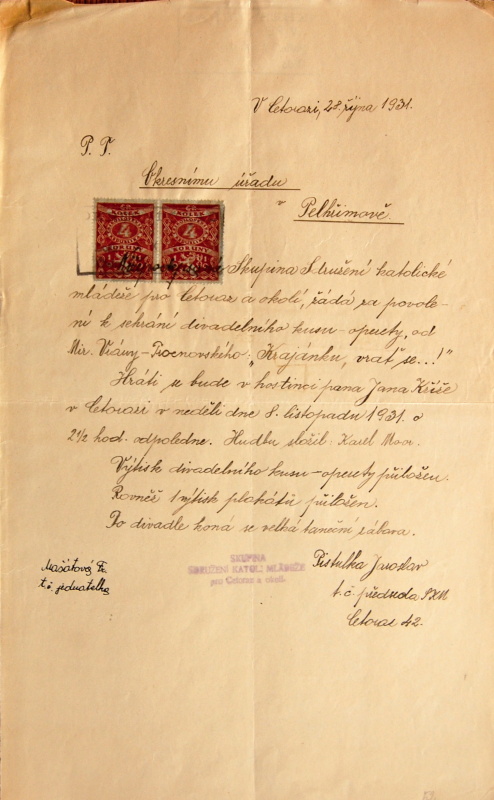 V Cetorazi, 28. října 1931.
P. T.
Okresnímu úřadu
v
Pelhřimově.
KOLEK KOLEK
4 4
KORUNY KORUNY
Skupina Sdružení katolické
mládeže pro Cetoraz a okolí, žádá za povole-
ní k sehrání divadelního kusu - operety, od
Mir. Vrány-Trocnovského: „Krajánku, vrať se..!"
Hráti se bude v hostinci pana Jana Kříže
v Cetorazi v neděli dne 8. listopadu 1931 o
2½ hod. odpoledne. Hudbu složil: Karel Moor.
Výtisk divadelního kusu - operety přiložen.
Rovněž 1 výtisk plakátů přiložen.
Po divadle koná se velká taneční zábava.
Masátová Fr.
t.č. jednatelka
SKUPINA
SDRUŽENÍ KATOL. MLÁDEŽE
pro Cetoraz a okolí.
Pistulka Jaroslav
t. č. předseda SKM
Cetoraz 42.